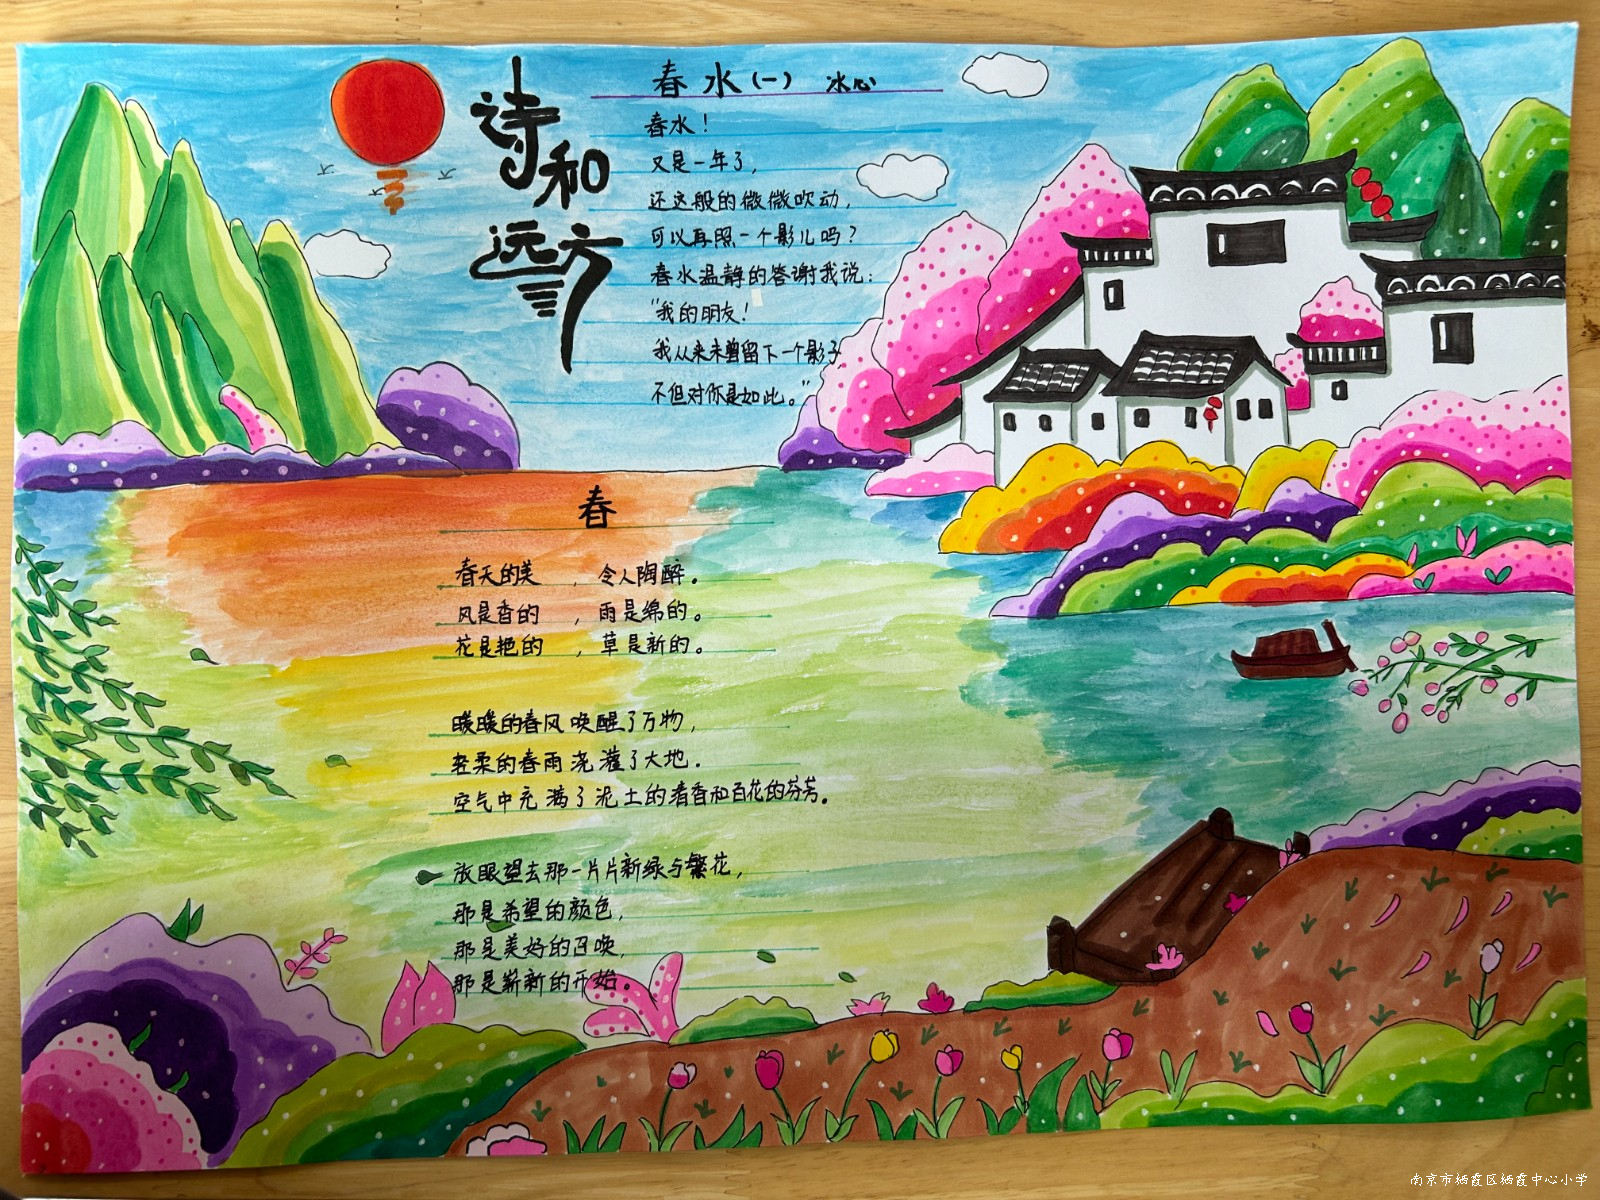 诗和
远方
春水(一) 冰心
春水！
又是一年了，
还这般的微微吹动，
可以再照一个影儿吗？
春水温静的答谢我说：
“我的朋友！
我从来未曾留下一个影子
不但对你是如此。”
春
春天的美，令人陶醉。
风是香的，雨是绵的。
花是艳的，草是新的。
暖暖的春风唤醒了万物，
轻柔的春雨浇灌了大地.
空气中充满了泥土的清香和百花的芬芳。
放眼望去那一片片新绿与繁花，
那是希望的颜色，
那是美好的召唤，
那是崭新的开始。
南京市栖霞区栖霞中心小学